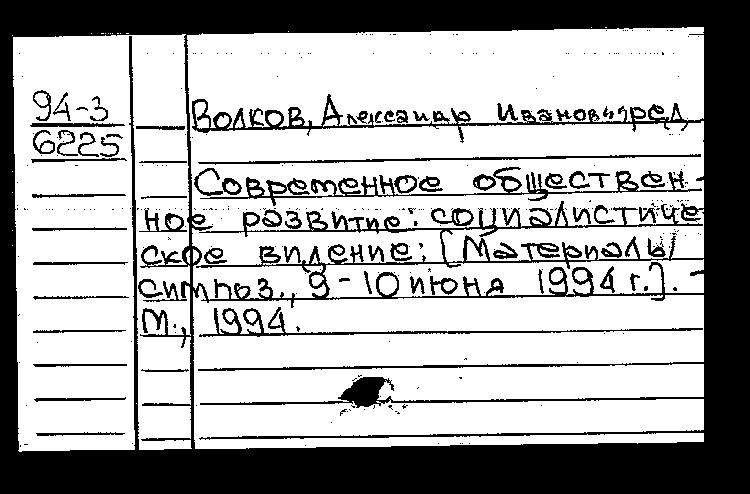 94-3
6225
Волков, Александр Иванович, ред.
Современное обществен-
ное развитие: социалистиче
ское видение: [Материалы
симпоз., 9-10 июня 1994 г.]. -
М., 1994.